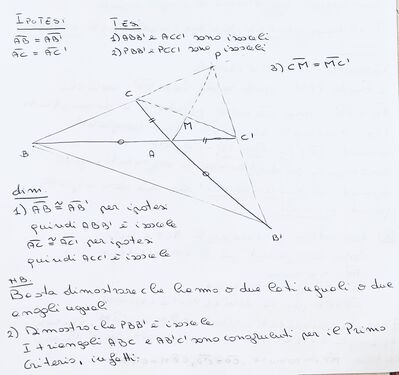 IPOTESI
TESI
AB = AB'
AC = AC'
1) ABB' e ACC' sono isosceli
2) PBB' e PCC' sono isosceli
3) CM = MC'
P
C
M
B
A
C'
B'
dim.
1) AB ≅ AB' per ipotesi
quindi ABB' è isoscele
AC ≅ AC' per ipotesi
quindi ACC' è isoscele
NB:
Basta dimostrare che hanno o due lati uguali o due
angoli uguali
2) Dimostro che PBB' è isoscele
I triangoli ABC e AB'C' sono congruenti per il Primo
Criterio, infatti: